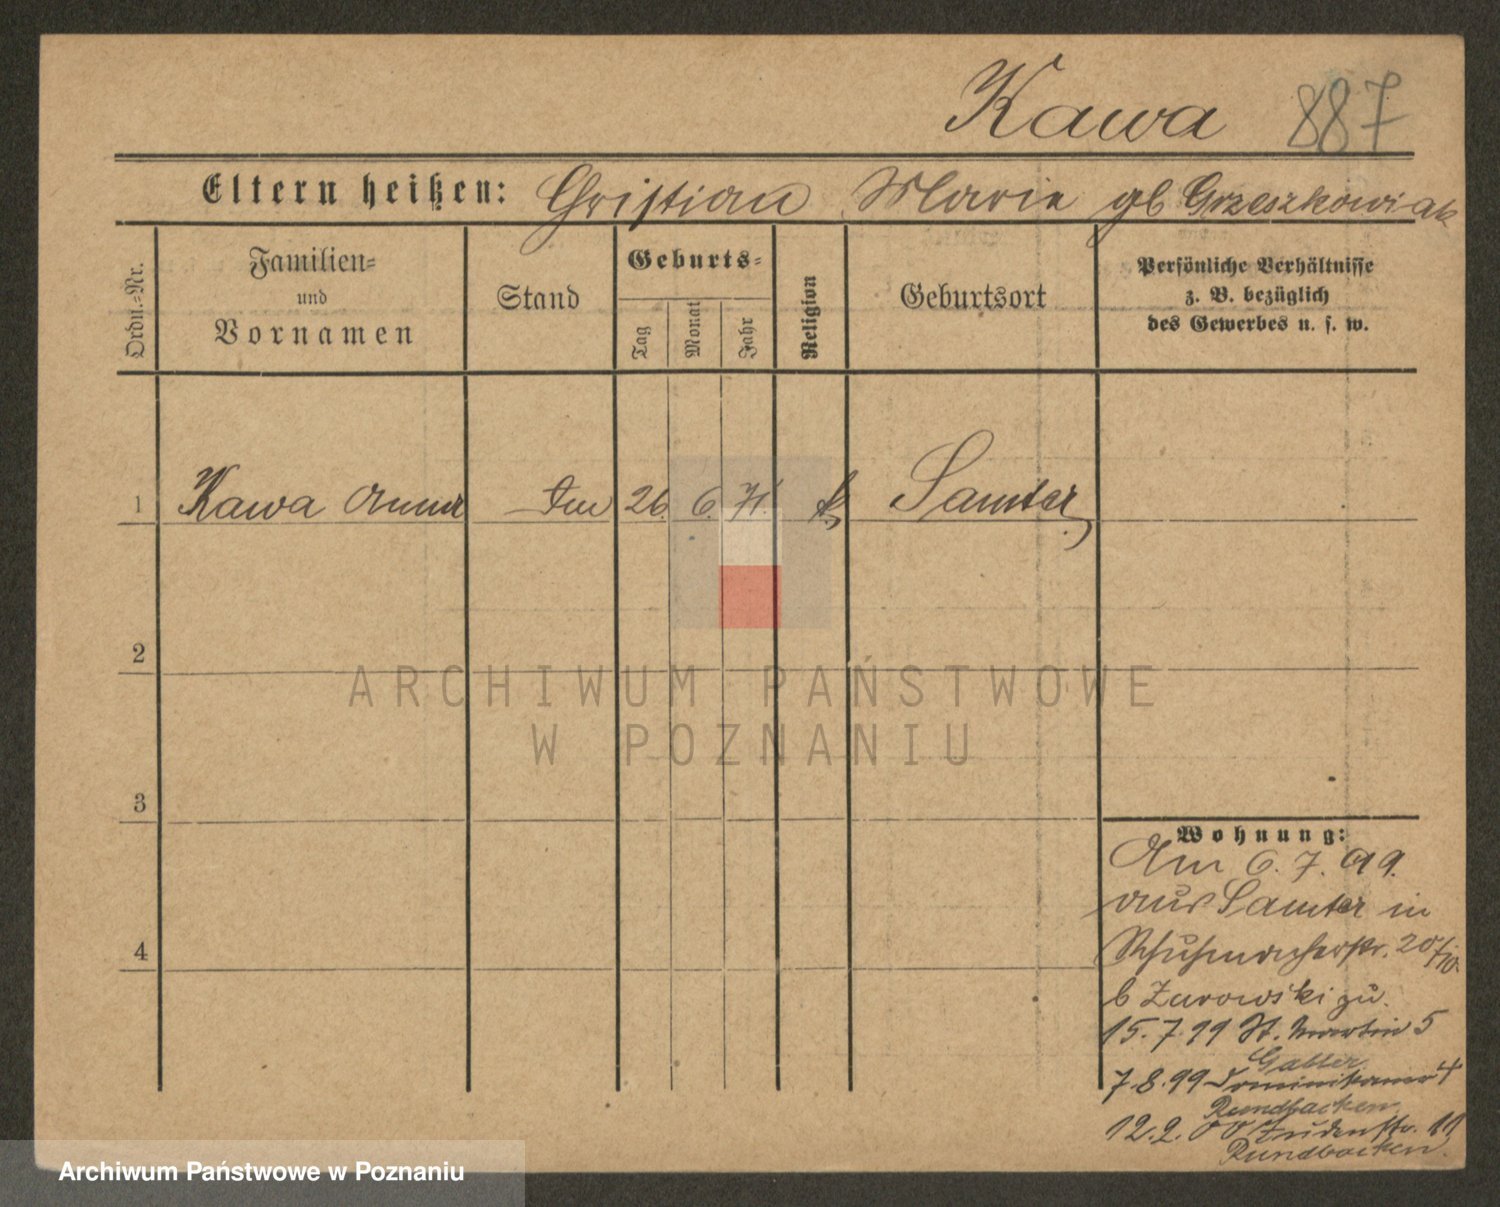 Kawa 887
Eltern heißen: Christian Marie gb Grzeszkowiak
Ordn.=Nr.
Familien=
und
Vornamen
Stand
Geburts=
Tag
Monat
Jahr
Religion
Geburtsort
Persönliche Verhältnisse
z. B. bezüglich
des Gewerbes u. s. w.
1 Kawa Anna 26. 6. 71. k Samter
2
3
4
Wohnung:
Am 6. 7. 99.
aus Samter in
Schuhmacherstr. 20/
b Zurowski zu.
15. 7. 99 St. Martin 5
7. 8. 99 Dominikaner 4
Rundbacken
12. 2. 00 Judenstr. 11
Rundbacken.
ARCHIWUM PAŃSTWOWE
W POZNANIU
Archiwum Państwowe w Poznaniu